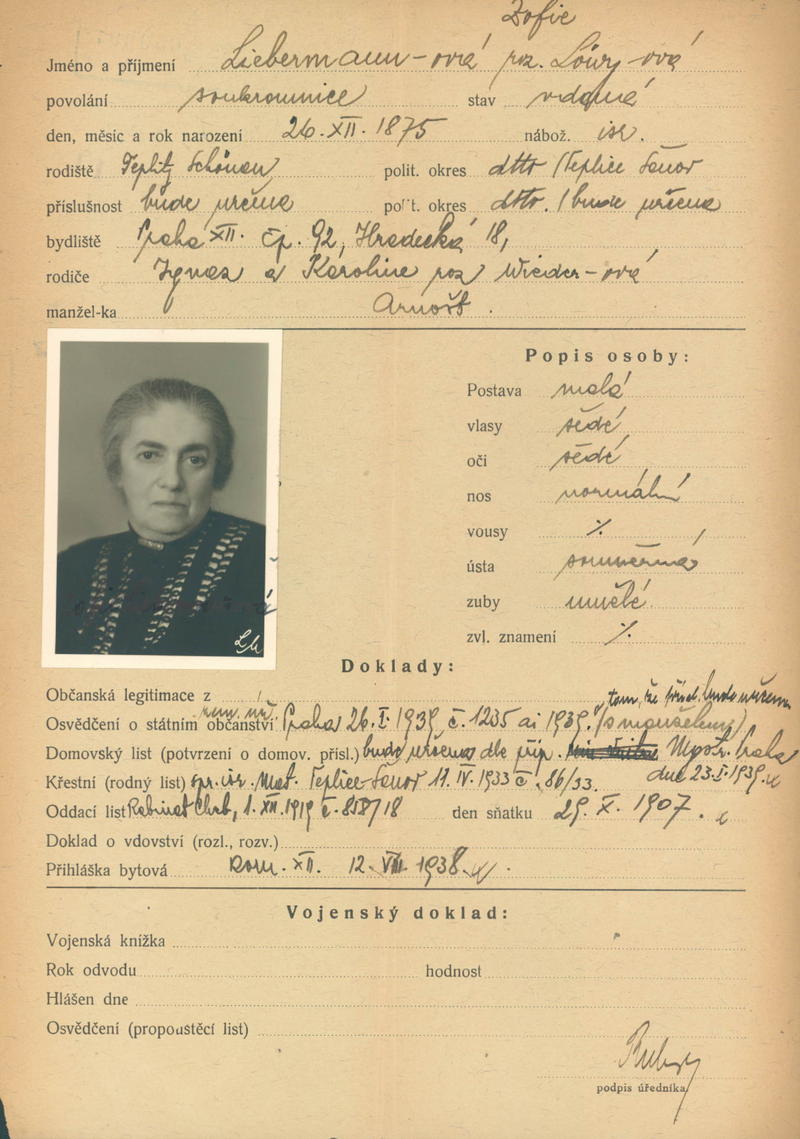 Zofie
Jméno a příjmení Liebermann-ová roz. Löwy-ová
povolání soukromnice stav vdaná
den, měsíc a rok narození 26. XII. 1875 nábož. isr.
rodiště Teplitz Schönau polit. okres dtto /Teplice Šanov
příslušnost bude určena polit. okres dtto. / bude určena
bydliště Praha XII. čp. 92, Hradecká 18,
rodiče Ignaz a Karoline roz Wieder-ová
manžel-ka Arnošt.
Popis osoby:
Postava malá
vlasy šedé
oči šedé
nos normální
vousy ⁒
ústa souměrná
zuby umělé
zvl. znamení ⁒
Lh
Doklady:
Občanská legitimace z / tom, že přísl. bude určena
Osvědčení o státním občanství zem. úř. Praha 26. I. 1939 č. 1235 ai 1939. (s manželem)
Domovský list (potvrzení o domov. přísl.) bude určena dle příp. Mgstr. Praha
dne 23. I. 1939
Křestní (rodný list) opr. isr. Mat. Teplice Šanov 11. IV. 1933 č. 86/33.
Oddací list Rabinat Cheb, 1. XII. 1919 č. 858/18 den sňatku 29. X. 1907.
Doklad o vdovství (rozl., rozv.)
Přihláška bytová kom. XII. 12. VIII. 1938.
Vojenský doklad:
Vojenská knížka
Rok odvodu hodnost
Hlášen dne
Osvědčení (propouštěcí list)
podpis úředníka